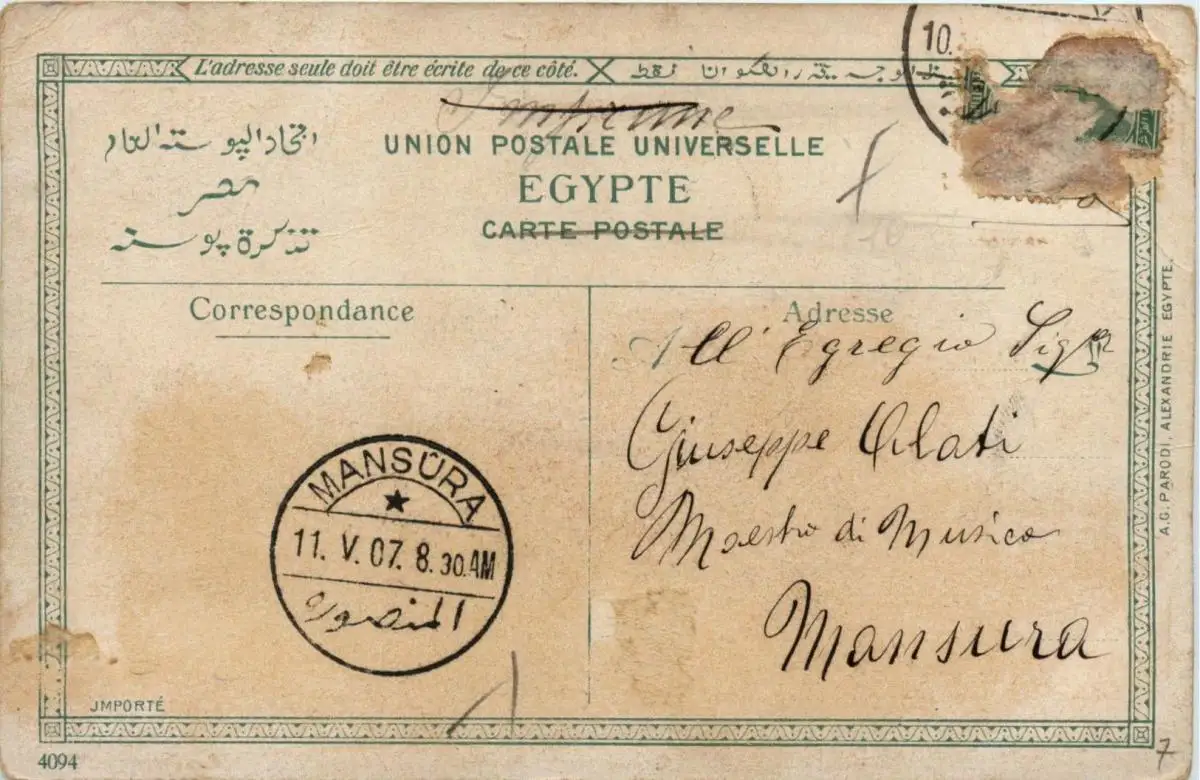 10.
L'adresse seule doit être écrite de ce côté.
Imprimé
اتحاد البوسته العام
UNION POSTALE UNIVERSELLE
مصر
EGYPTE
تذكرة بوسته
CARTE POSTALE
Correspondance
Adresse
All' Egregio Sigr
Giuseppe
Maestro di Musica
Mansura
MANSÛRA
11. V. 07. 8.30.AM
المنصورة
A.G. PARODI, ALEXANDRIE EGYPTE.
JMPORTÉ
4094
7